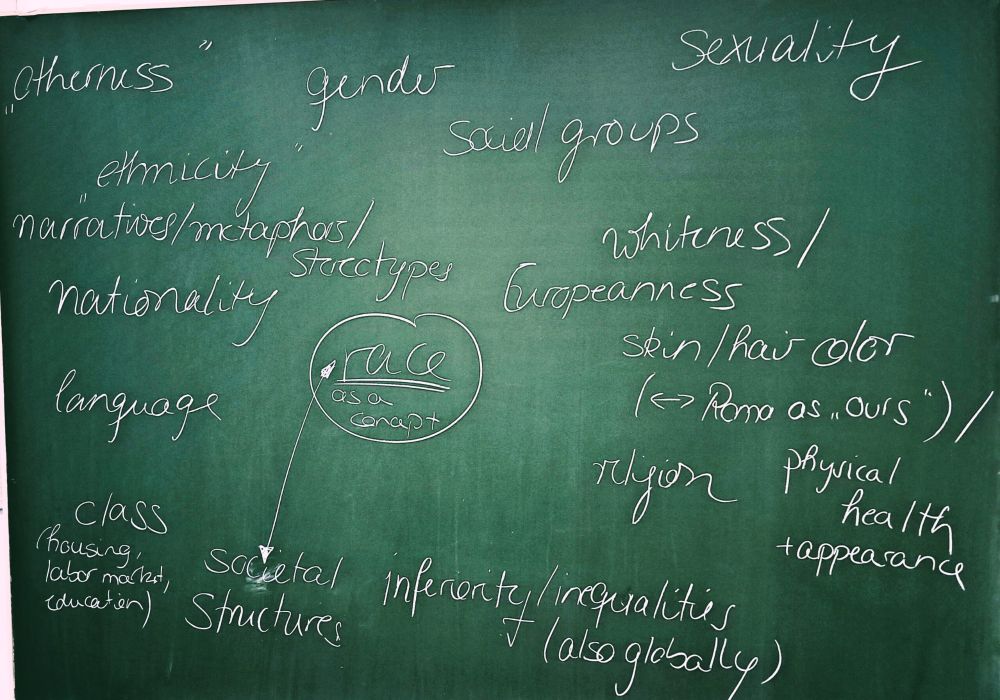 „otherness”
gender
sexuality
social groups
„ethnicity”
narratives/metaphors/
stereotypes
whiteness/
Europeanness
nationality
skin/hair color
(↔ Roma as „ours“) /
physical
health
+appearance
race
as a
concept
language
religion
class
(housing,
labor market,
education)
societal
structures
inferiority/inequalities
(also globally)